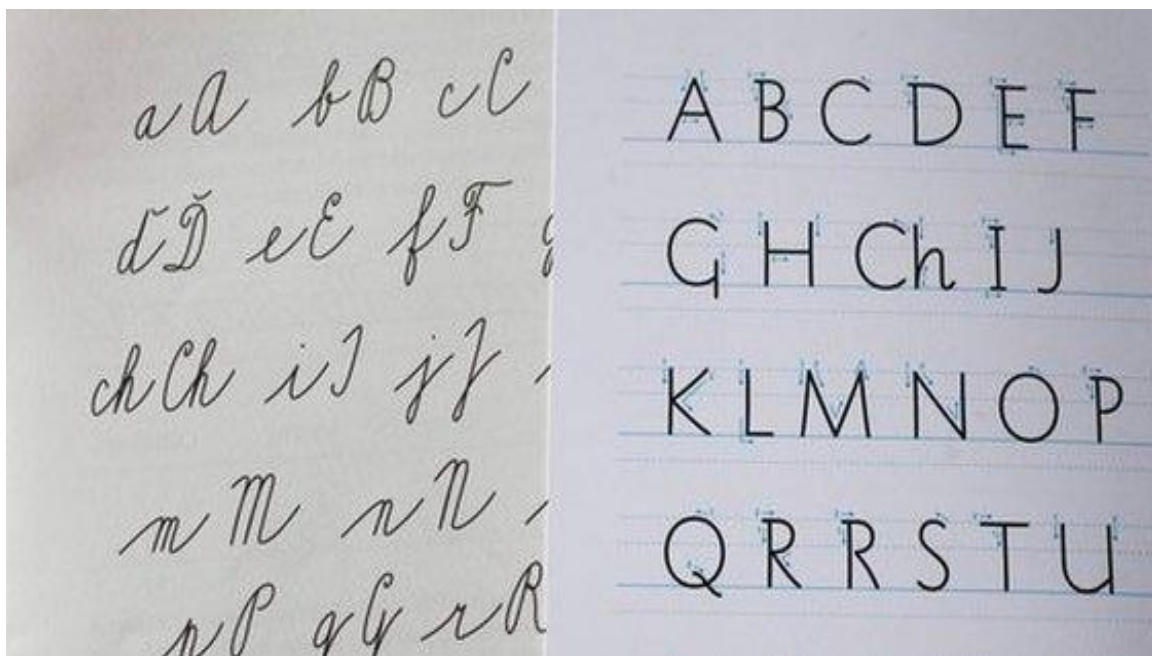 aA bB cC
ďĎ eE fF
chCh iI jJ
mM nN
pP qQ rR
A B C D E F
G H Ch I J
K L M N O P
Q R R S T U